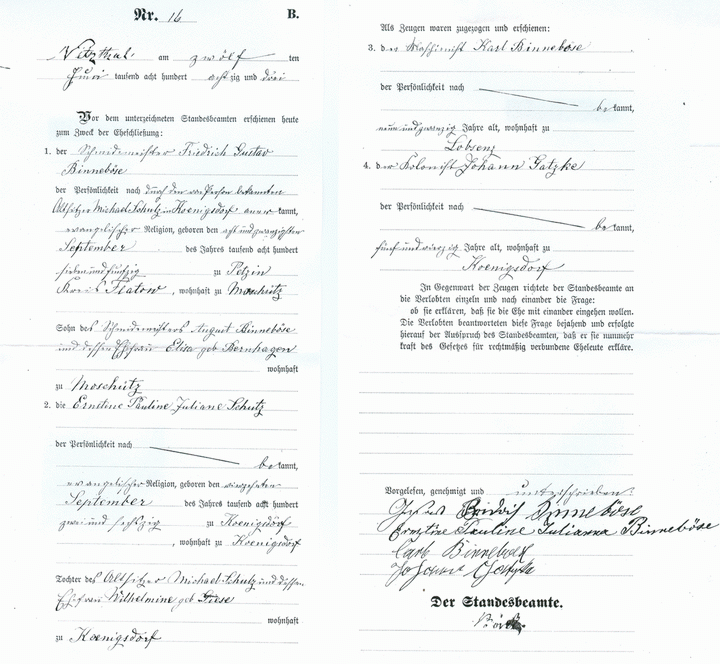 Nr. 16 B.
Netzthal am zwölf ten
Juni tausend acht hundert acht zig und drei
Vor dem unterzeichneten Standesbeamten erschienen heute
zum Zweck der Eheschließung:
1. der Schmiedemeister Friedrich Gustav
Binneböse
der Persönlichkeit nach durch den von Person bekannten
Altsitzer Michael Schulz in Koenigsdorf aner kannt,
evangelischer Religion, geboren den acht und zwanzigsten
September des Jahres tausend acht hundert
sieben und fünfzig zu Petzin
Kreis Flatow, wohnhaft zu Moschütz
Sohn des Schmiedemeisters August Binneböse
und dessen Ehefrau Elisa geb Bernhagen
wohnhaft
zu Moschütz
2. die Ernstine Pauline Juliane Schulz
der Persönlichkeit nach
be kannt,
evangelischer Religion, geboren den vierzehnten
September des Jahres tausend acht hundert
zwei und sechzig zu Koenigsdorf
, wohnhaft zu Koenigsdorf
Tochter des Altsitzer Michael Schulz und dessen
Ehefrau Wilhelmine geb Giese
wohnhaft
zu Koenigsdorf
Als Zeugen waren zugezogen und erschienen:
3. der Maschinist Karl Binneböse
der Persönlichkeit nach
be kannt,
neun und zwanzig Jahre alt, wohnhaft zu
Lobsenz
4. der Kolonist Johann Gatzke
der Persönlichkeit nach
be kannt,
fünf und vierzig Jahre alt, wohnhaft zu
Koenigsdorf
In Gegenwart der Zeugen richtete der Standesbeamte an
die Verlobten einzeln und nach einander die Frage:
ob sie erklären, daß sie die Ehe mit einander eingehen wollen.
Die Verlobten beantworteten diese Frage bejahend und erfolgte
hierauf der Ausspruch des Standesbeamten, daß er sie nunmehr
kraft des Gesetzes für rechtmäßig verbundene Eheleute erkläre.
Vorgelesen, genehmigt und unterschrieben:
Binneböse
Ernstine Pauline Julianna Binneböse
Carl Binneböse
Johann Gatzke
Der Standesbeamte.